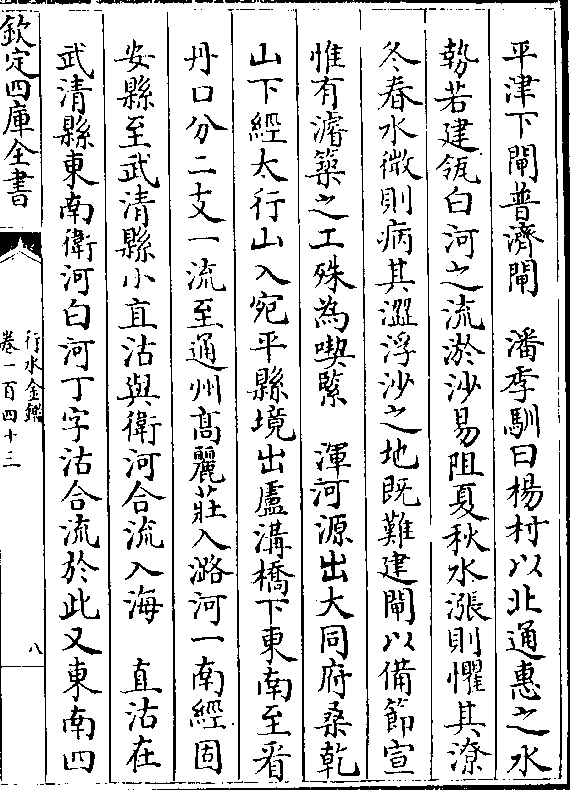 平津下閘普濟閘　潘季馴曰楊村以北通惠之水
勢若建瓴白河之流淤沙易阻夏秋水漲則懼其潦
冬春水微則病其澀浮沙之地既難建閘以備節宣
惟有濬築之工殊為喫緊　渾河源出大同府桑乾
山下經太行山入宛平縣境出盧溝橋下東南至看
丹口分二支一流至通州髙麗莊入潞河一南經固
安縣至武清縣小直沽與衛河合流入海　直沽在
武清縣東南衛河白河丁字沽合流於此又東南四
欽定四庫全書
行水金鑑
卷一百四十二
八